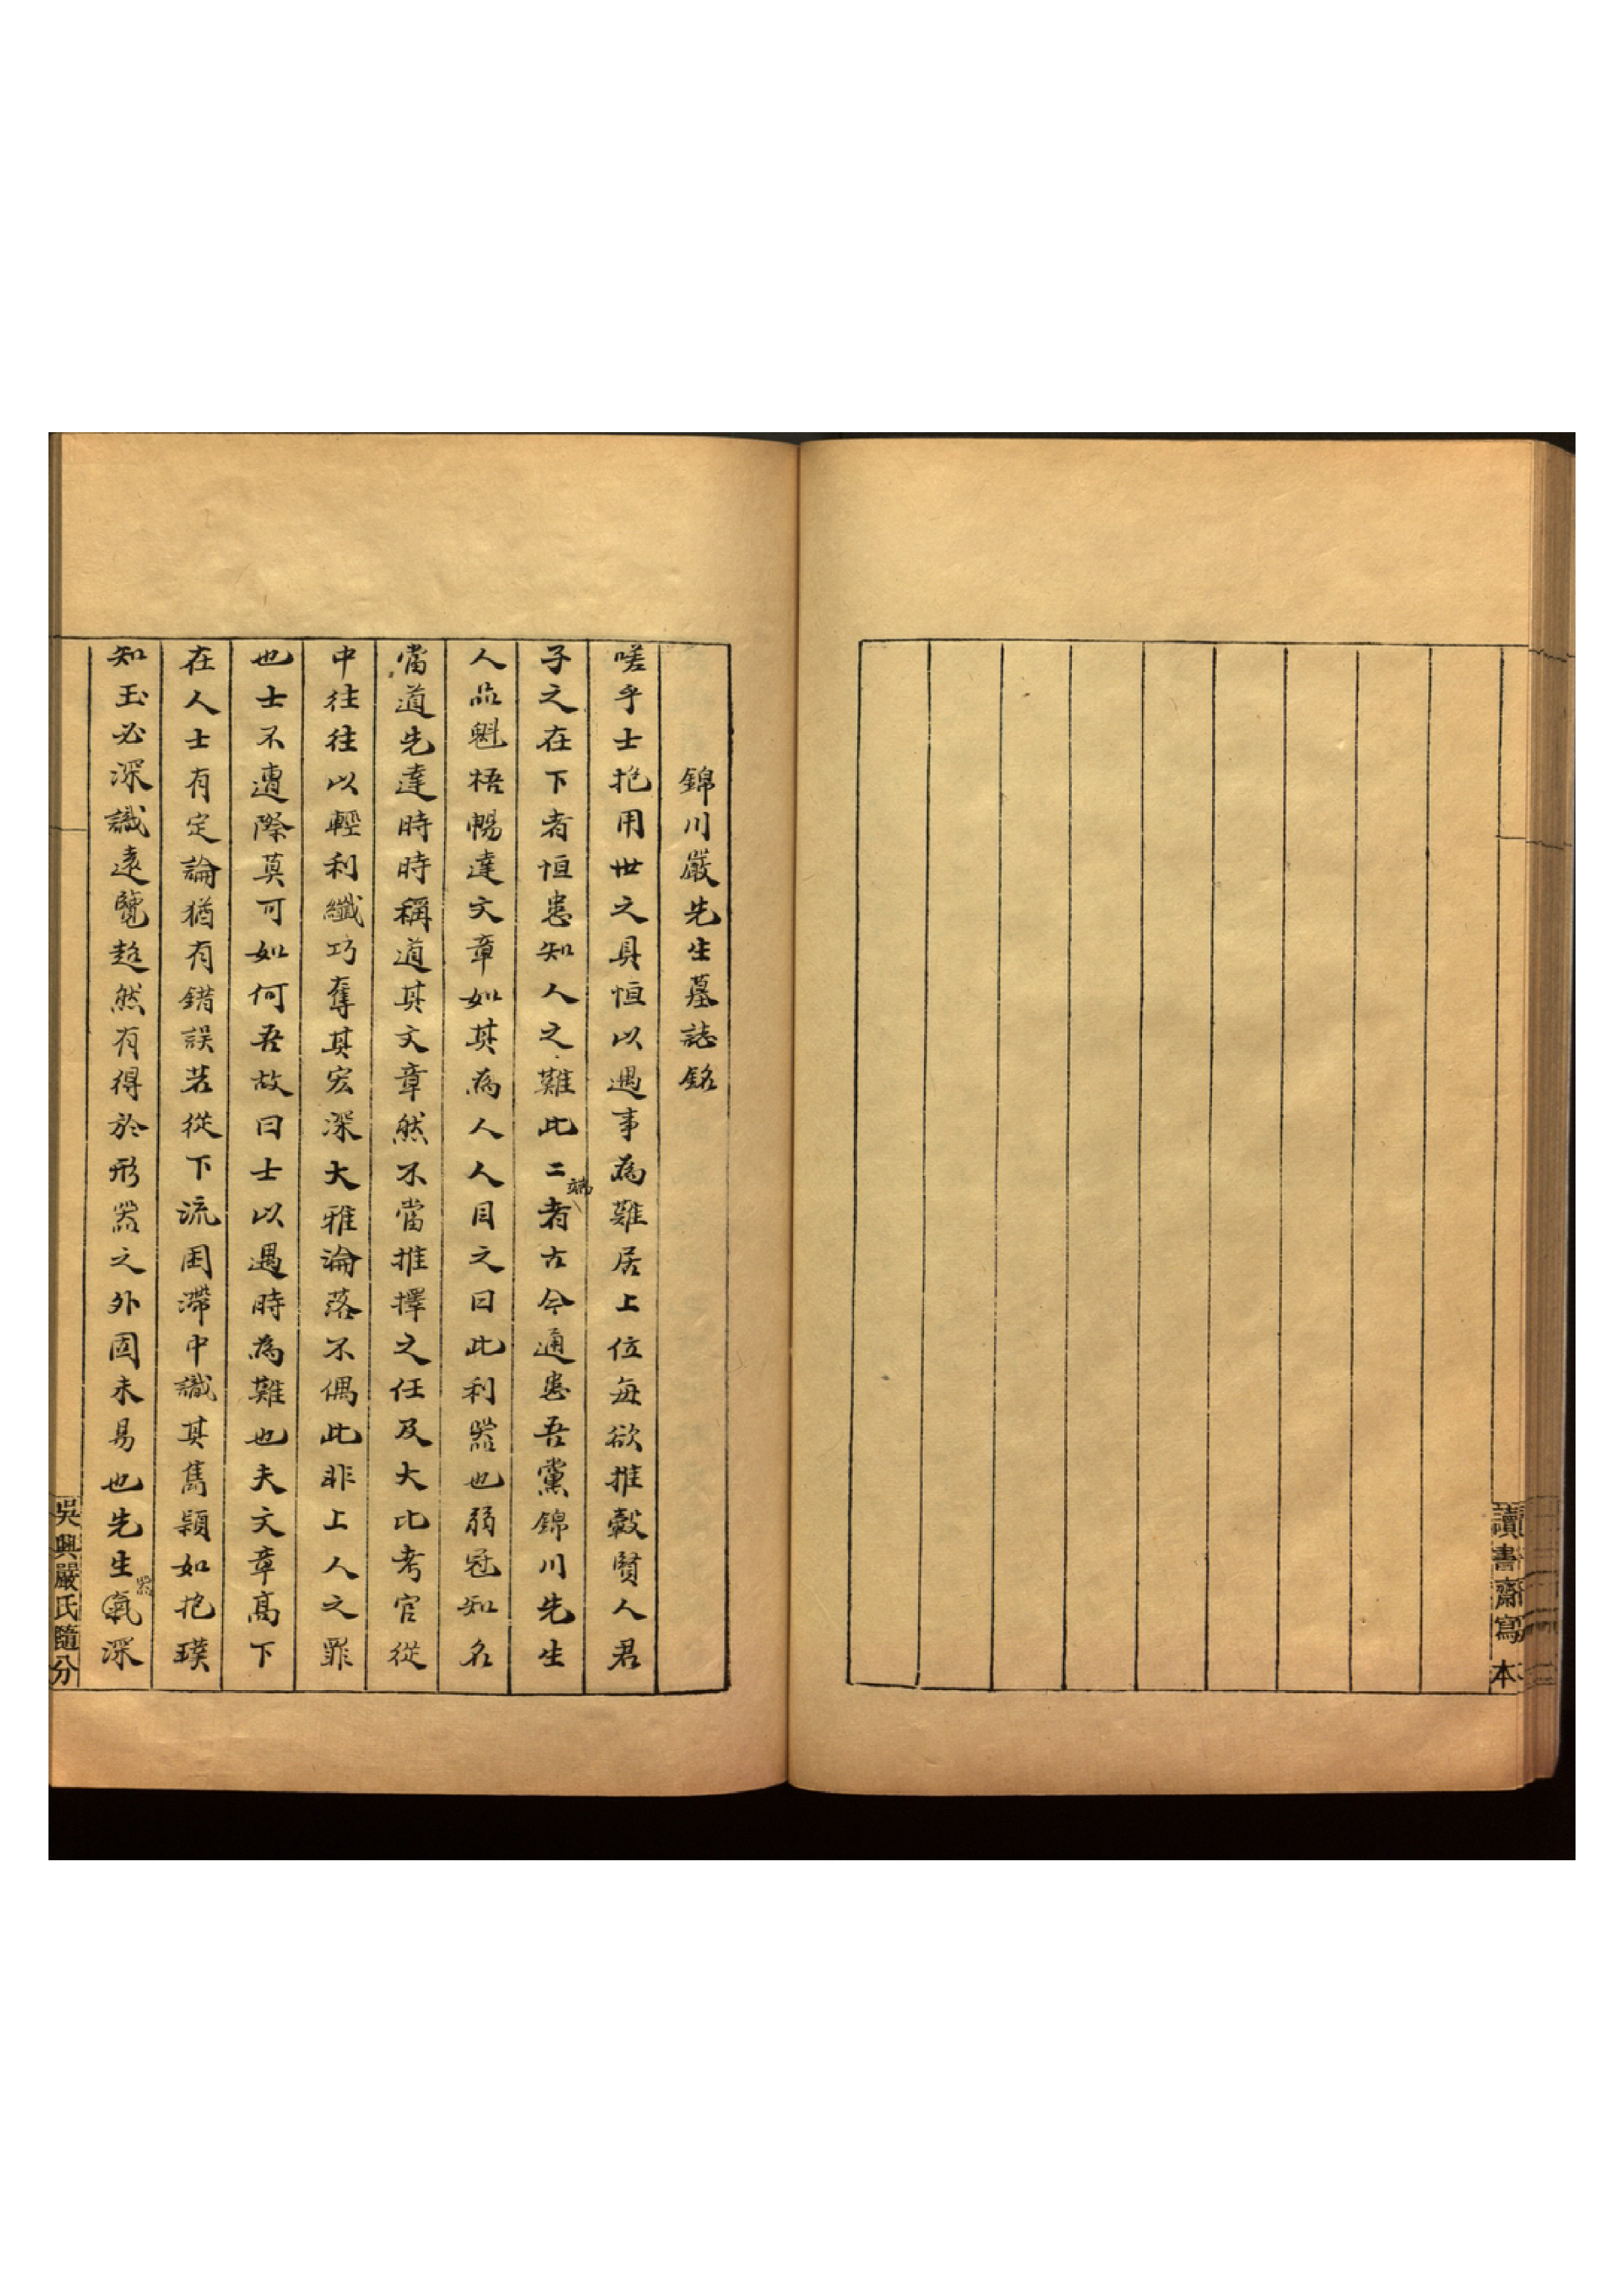 讀書齋寫本
錦川嚴先生墓誌銘
嗟乎士抱用世之具恒以遇事為難居上位每欲推轂賢人君
子之在下者恒患知人之難此二者古今通患吾黨錦川先生
端
人品魁梧暢達文章如其為人人目之曰此利器也弱冠知名
當道先達時時稱道其文章然不當推擇之任及大比考官從
中往往以輕利纖巧奪其宏深大雅淪落不偶此非上人之罪
也士不遭際莫可如何吾故曰士以遇時為難也夫文章高下
在人士有定論猶有錯誤若從下流困滯中識其雋穎如抱璞
知玉必深識遠覽超然有得於形器之外固未易也先生氣深
器
吳興嚴氏隨分